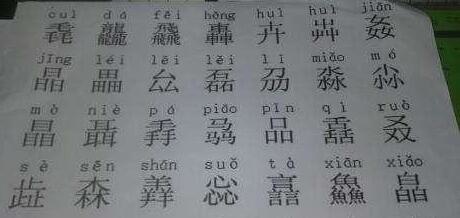 cuì dá fēi hōng huì huì jiān
毳 龘 飝 轟 卉 芔 姦
jīng léi lěi lěi lí miǎo mó
晶 畾 厽 磊 刕 淼 尛
mò niè pá piāo pǐn qì ruò
瞐 聶 掱 骉 品 叒
sè sēn shān suǒ tà xiān xiǎo
歮 森 羴 惢 譶 鱻 皛